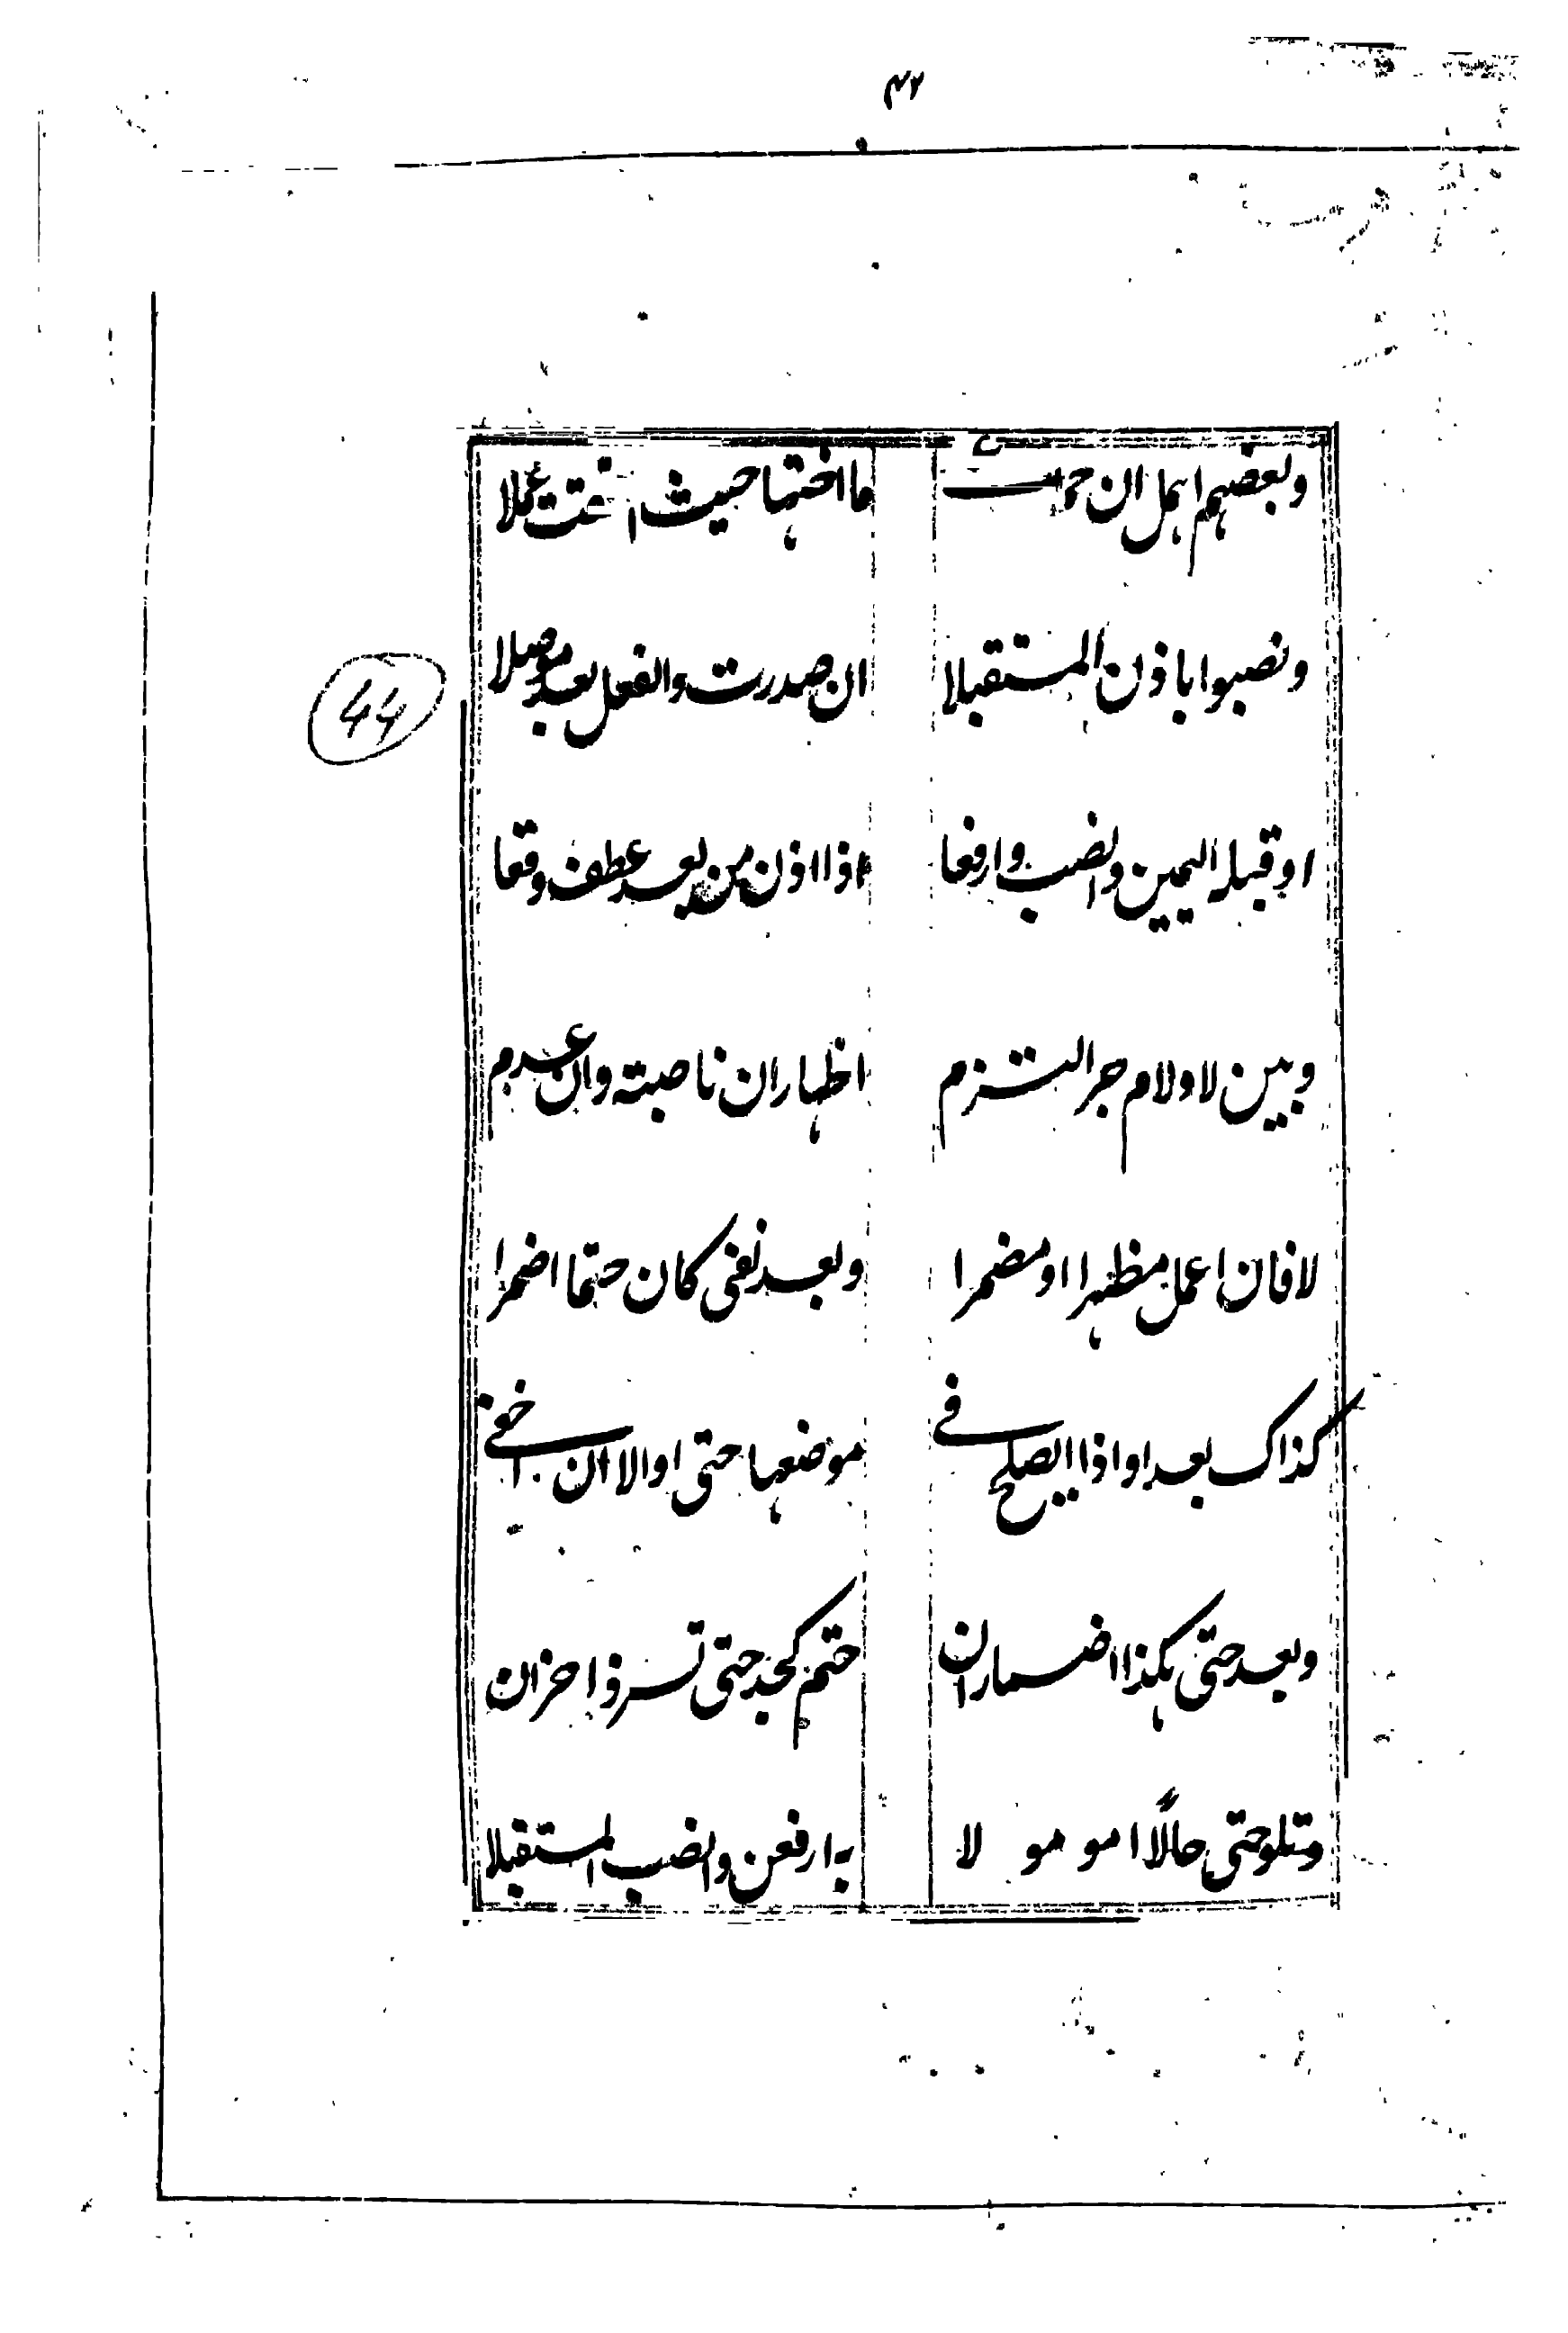 ۴۲
وبعضهم اهمل ان حملا ما اختها حيث استحقت عملا
44
ونصبوا باذن المستقبلا ان صدرت والفعل بعد موصلا
او قبله اليمين وانصب وارفعا اذا اذن من بعد عطف وقعا
وبين لا ولام جر التزم اظهار ان ناصبته وان عدم
لا فان اعمل مظهرا او مضمرا وبعد نفى كان حتما اضمرا
كذاك بعد او اذا يصلح فے موضعها حتى او الا ان خفے
وبعد حتى هكذا اضمار ان حتم كجد حتى تسر ذا حزن
وتلو حتى حالًا او مو لا به ارفعن وانصب المستقبلا